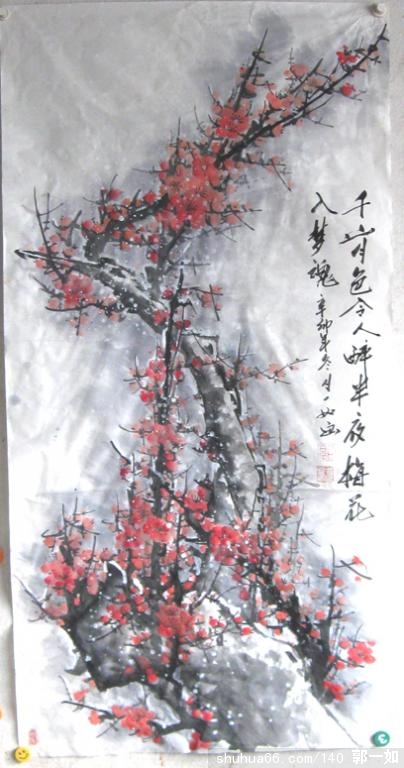 千山月色令人醉半夜梅花
入梦魂 辛卯年冬月一如画
shuhua66.com/140 郭一如